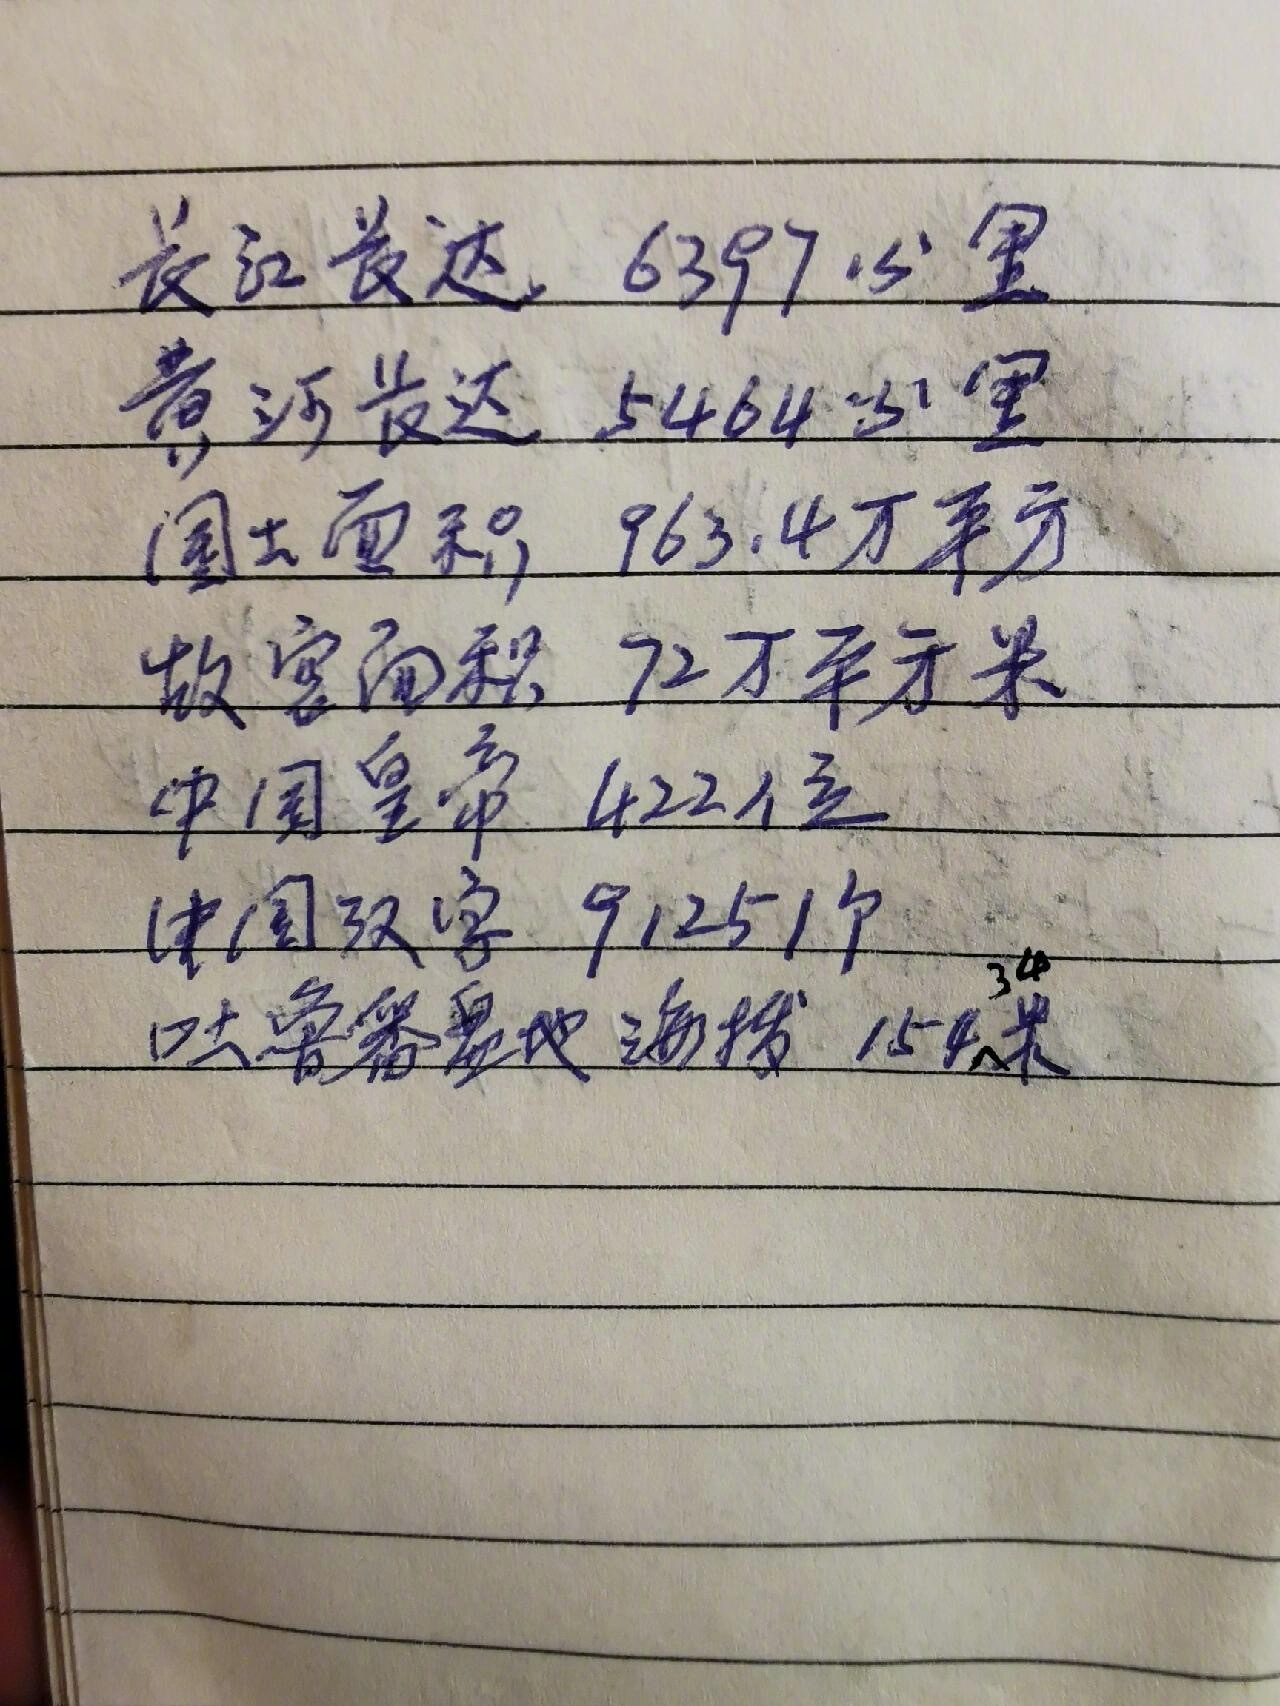 长江长达 6397公里
黄河长达 5464公里
国土面积 963.4万平方
故宫面积 72万平方米
中国皇帝 422位
中国汉字 91251个
吐鲁番盆地 海拔 154.34米